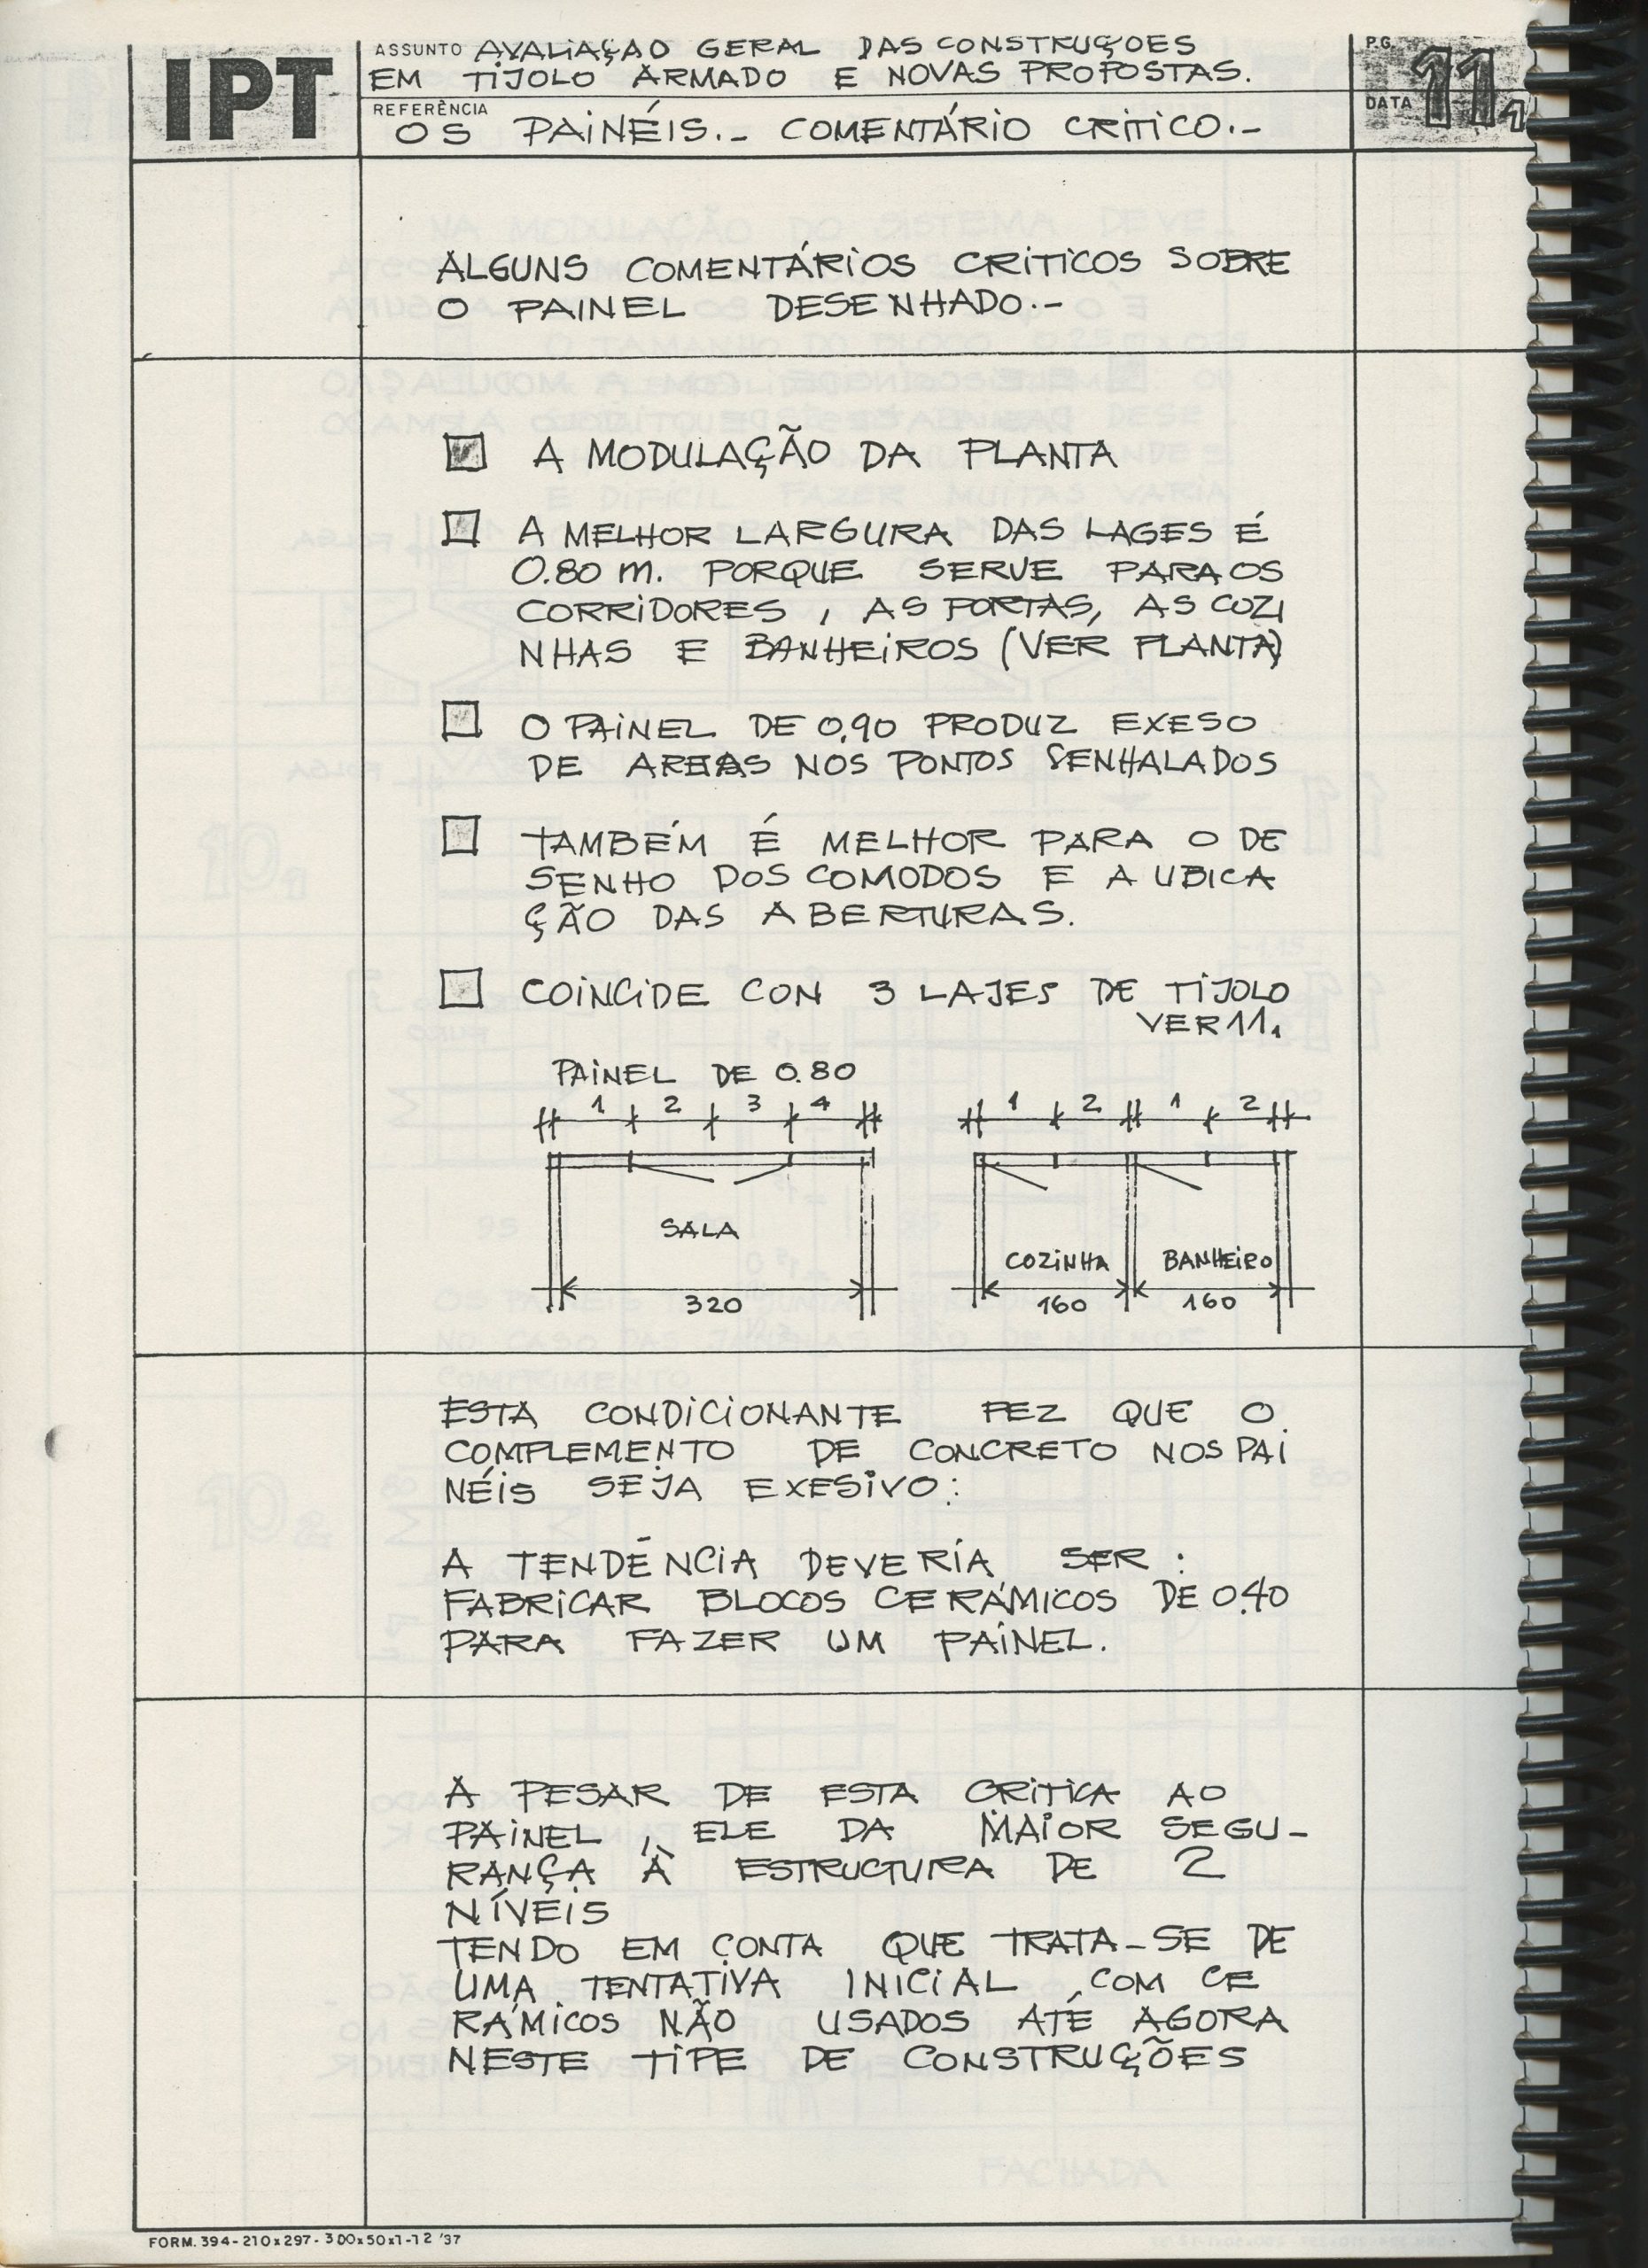 IPT
ASSUNTO AVALIAÇAO GERAL DAS CONSTRUÇOES
EM TIJOLO ARMADO E NOVAS PROPOSTAS.
REFERÊNCIA
OS PAINÉIS.- COMENTÁRIO CRITICO.-
PG.
DATA
11,1
ALGUNS COMENTÁRIOS CRITICOS SOBRE
O PAINEL DESENHADO.-
A MODULAÇÃO DA PLANTA
A MELHOR LARGURA DAS LAGES É
0.80 m. PORQUE SERVE PARA OS
CORRIDORES, AS PORTAS, AS COZI
NHAS E BANHEIROS (VER PLANTA)
O PAINEL DE 0,90 PRODUZ EXESO
DE AREAS NOS PONTOS SENHALADOS
TAMBÉM É MELHOR PARA O DE
SENHO DOS COMODOS E A UBICA
ÇÃO DAS ABERTURAS.
COINCIDE CON 3 LAJES DE TIJOLO
VER 11.
PAINEL DE 0.80
1 2 3 4 1 2 1 2
SALA
COZINHA BANHEIRO
320 160 160
ESTA CONDICIONANTE FEZ QUE O
COMPLEMENTO DE CONCRETO NOS PAI
NÉIS SEJA EXESIVO:
A TENDÉNCIA DEVERÍA SER:
FABRICAR BLOCOS CERÁMICOS DE 0.40
PARA FAZER UM PAINEL.
A PESAR DE ESTA CRITICA AO
PAINEL, ELE DA MAIOR SEGU-
RANÇA À ESTRUCTURA DE 2
NÍVEIS
TENDO EM CONTA QUE TRATA-SE DE
UMA TENTATIVA INICIAL COM CE
RÁMICOS NÃO USADOS ATÉ AGORA
NESTE TIPE DE CONSTRUÇÕES
FORM. 394-210x297-300x50x1-12 '87